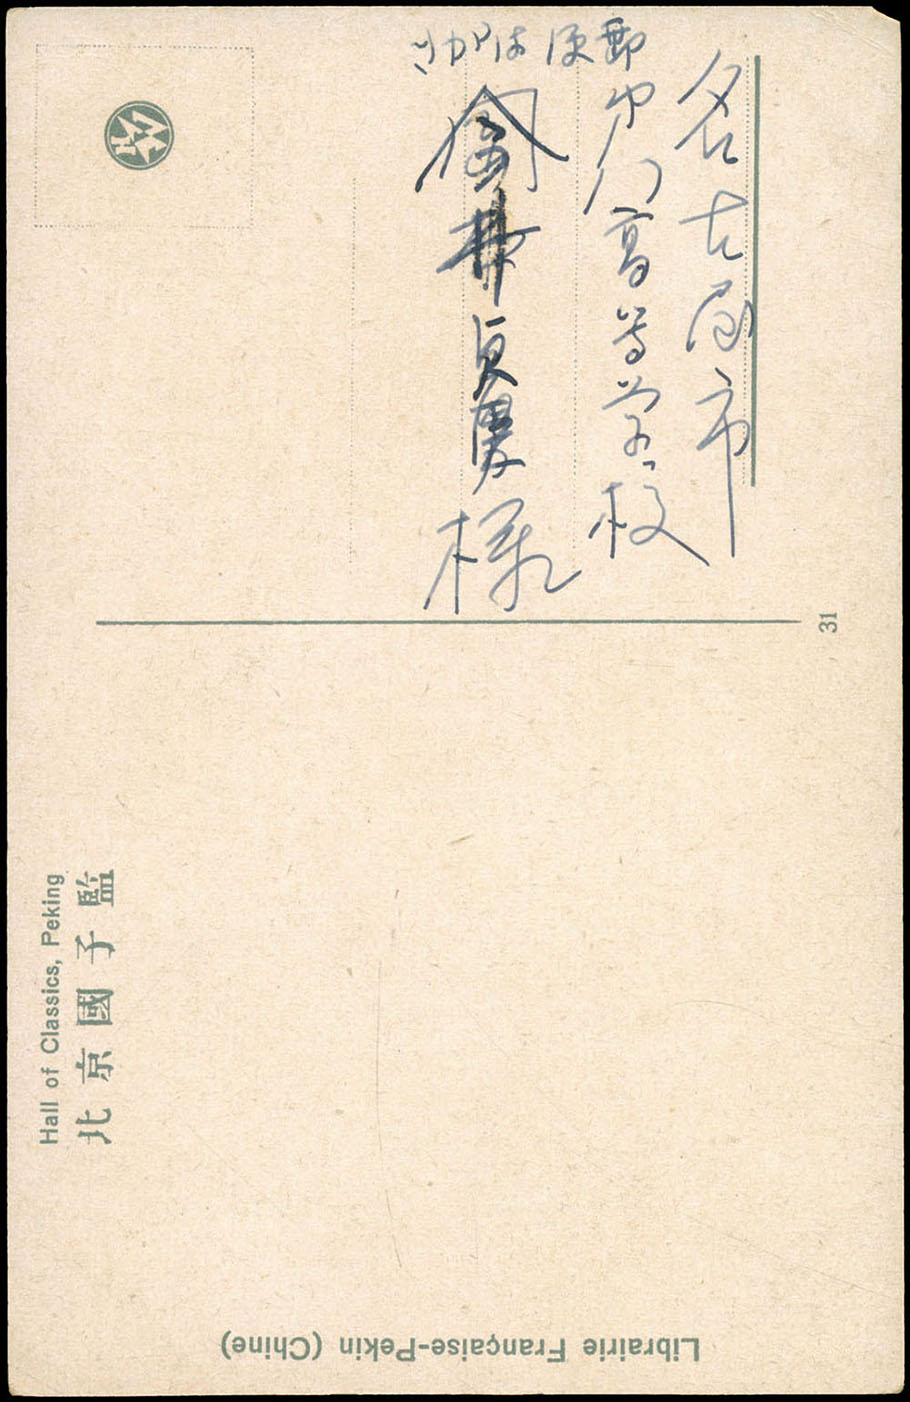 郵便はがき
名古屋市
高等学校
金井 様
31
Hall of Classics, Peking
北京國子監
Librairie Française-Pekin (Chine)